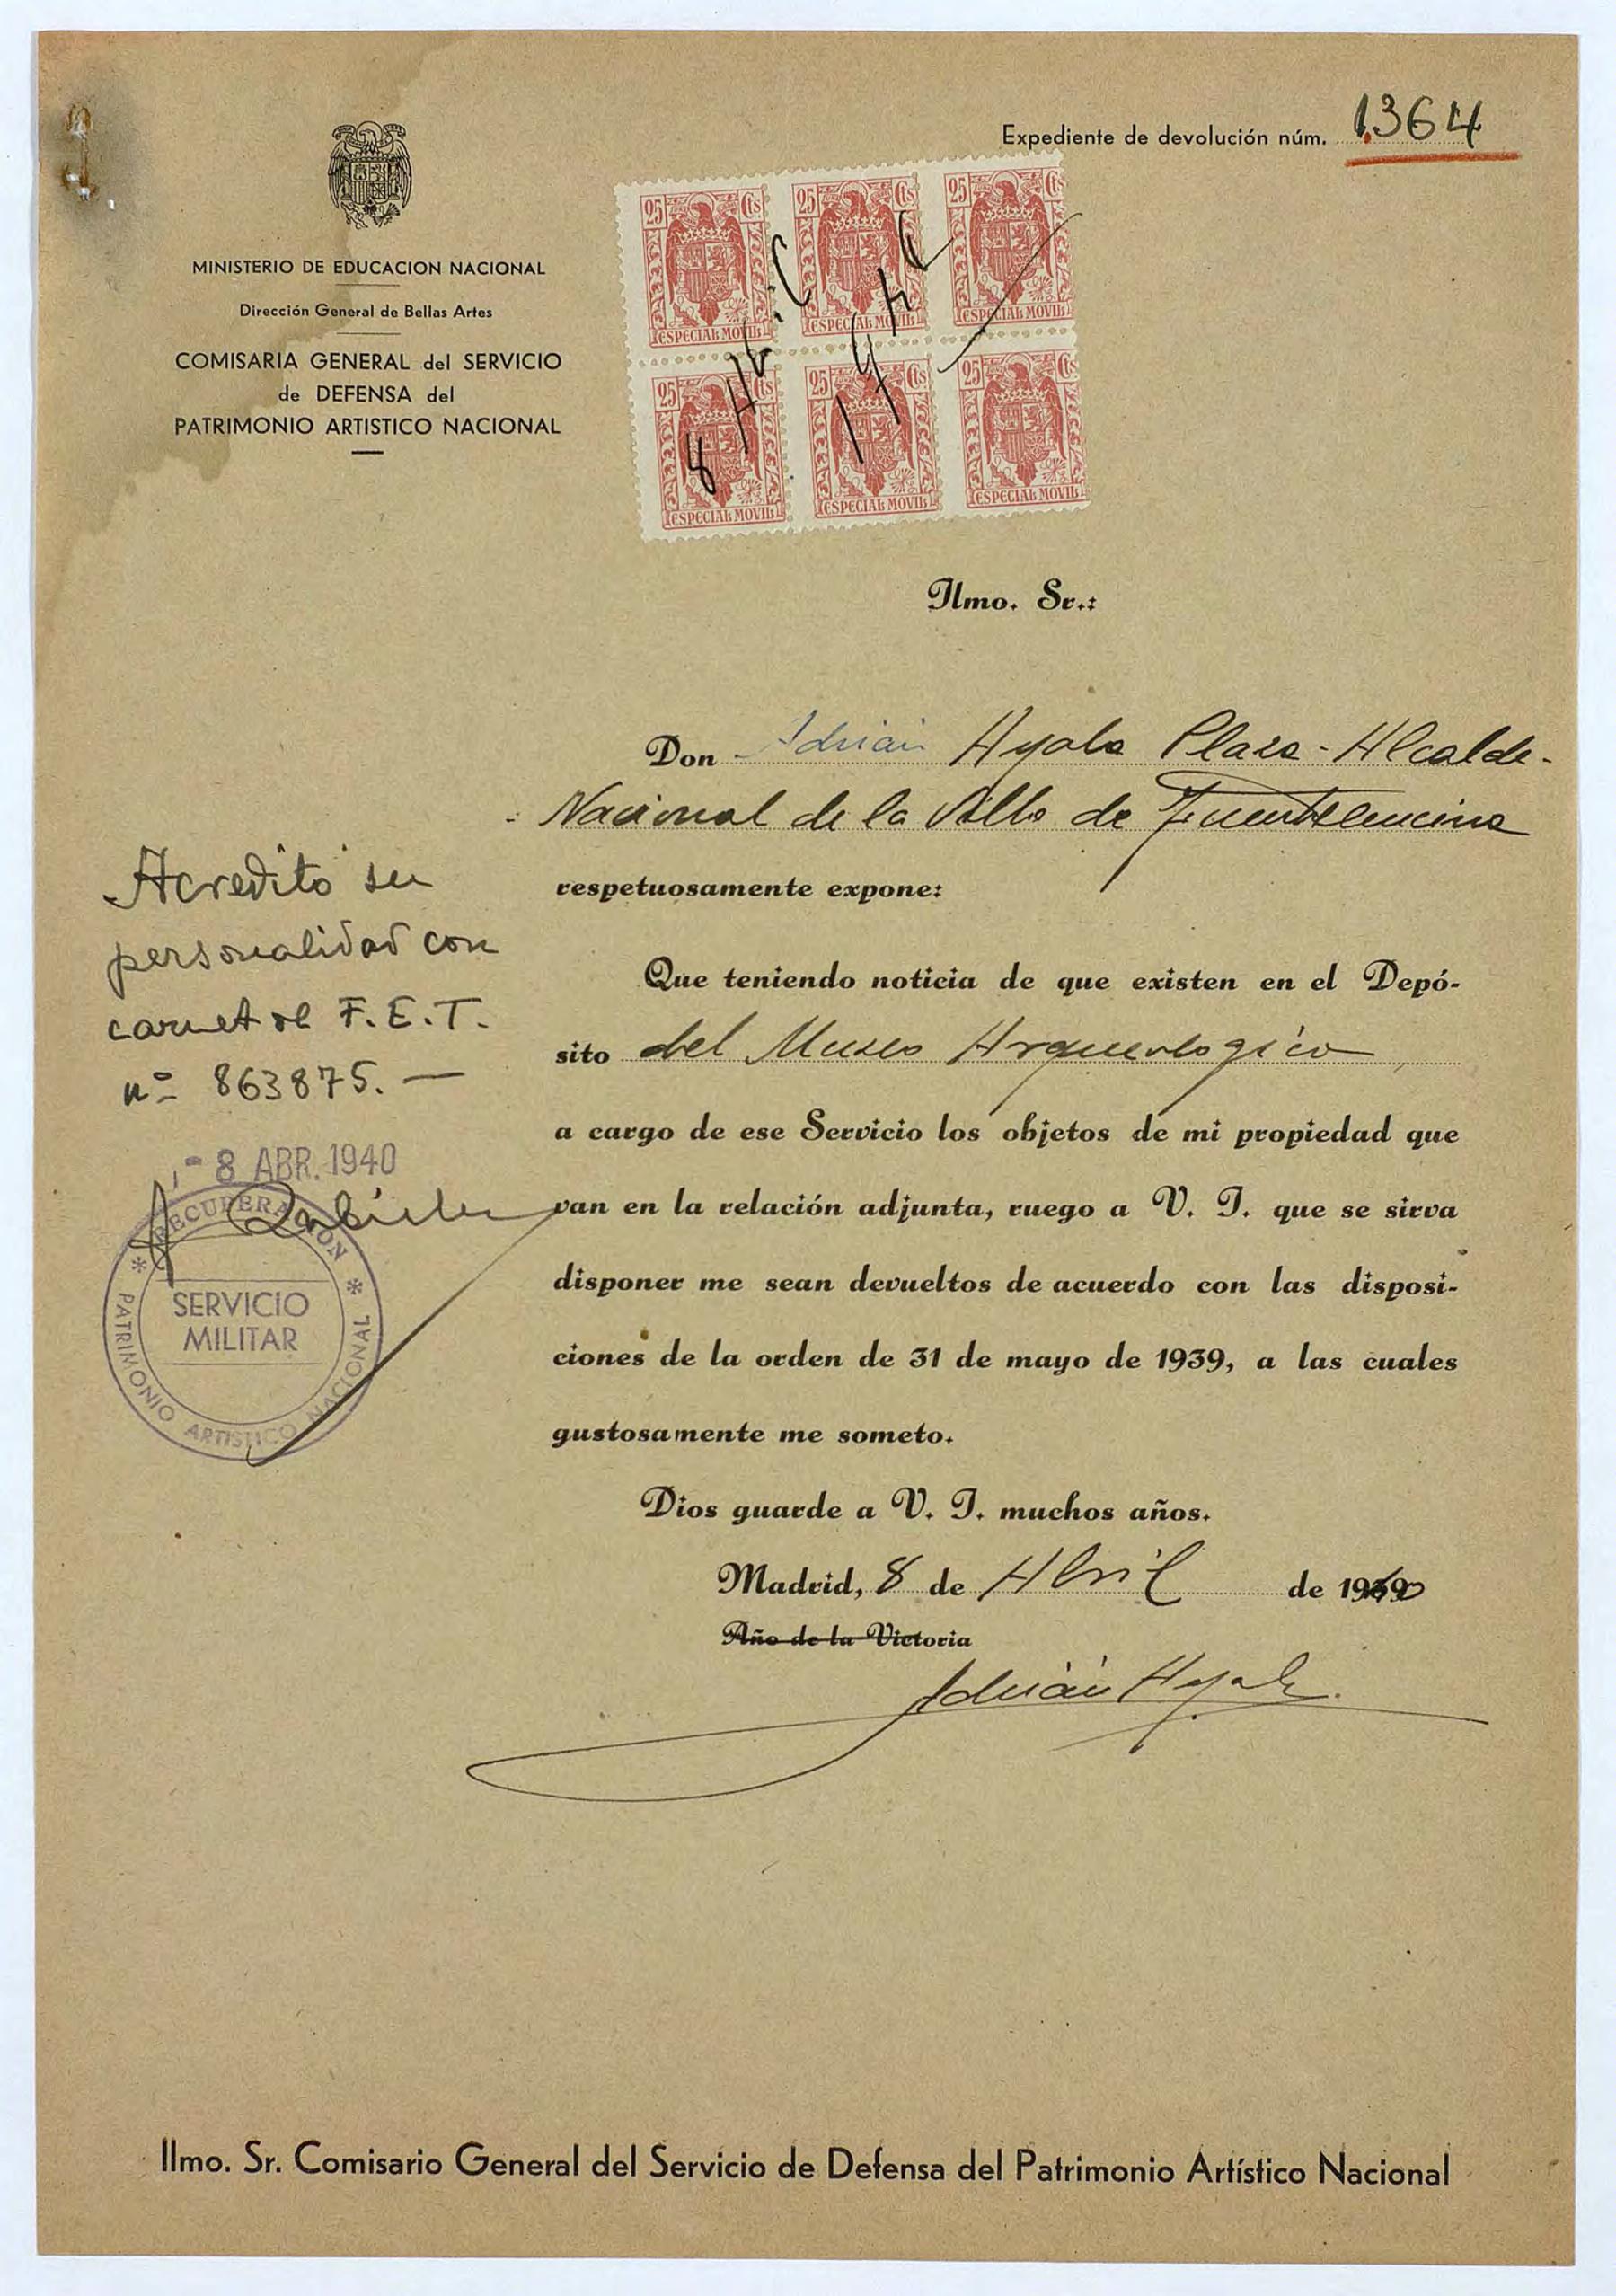 Expediente de devolución núm. 1.364
MINISTERIO DE EDUCACION NACIONAL
Dirección General de Bellas Artes
COMISARIA GENERAL del SERVICIO
de DEFENSA del
PATRIMONIO ARTISTICO NACIONAL
25 Cts 25 Cts 25 Cts
ESPECIAL MOVIL ESPECIAL MOVIL ESPECIAL MOVIL
25 Cts 25 Cts 25 Cts
ESPECIAL MOVIL ESPECIAL MOVIL ESPECIAL MOVIL
8
Ilmo. Sr.:
Don Adrián Ayala Plaza - Alcalde-
Nacional de la Villa de Fuentelencina
respetuosamente expone:
Que teniendo noticia de que existen en el Depó-
sito del Museo Arqueologico,
a cargo de ese Servicio los objetos de mi propiedad que
van en la relación adjunta, ruego a V. I. que se sirva
disponer me sean devueltos de acuerdo con las disposi-
ciones de la orden de 31 de mayo de 1939, a las cuales
gustosamente me someto.
Dios guarde a V. I. muchos años.
Madrid, 8 de Abril de 1940
Año de la Victoria
Adrián Ayala
Acredito su
personalidad con
carnet de F.E.T.
nº 863875. —
- 8 ABR. 1940
RECUPERACIÓN
SERVICIO
MILITAR
PATRIMONIO ARTISTICO NACIONAL
Ilmo. Sr. Comisario General del Servicio de Defensa del Patrimonio Artístico Nacional